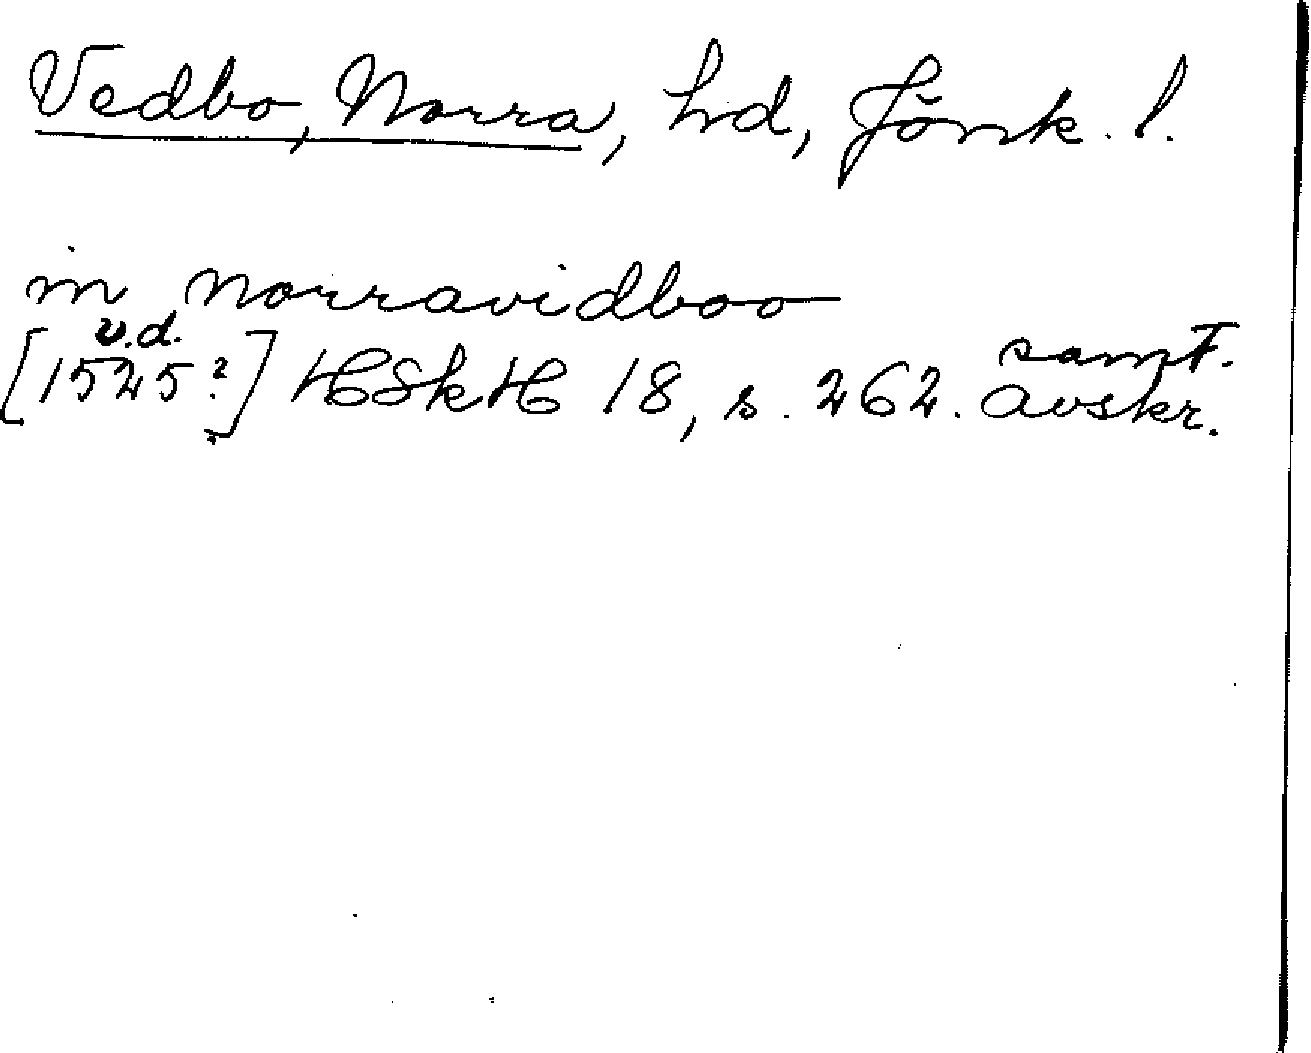 Vedbo, Norra, hd, Jönk. l.
in norravidboo
u.d. samt.
[1525?] HSkH 18, s. 262. avskr.